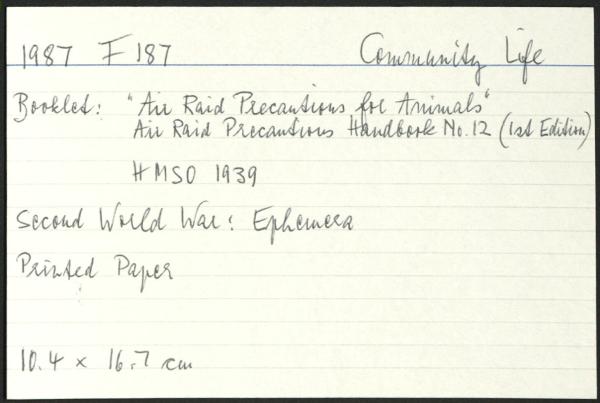 1987 F187 Community Life
Booklet: "Air Raid Precautions for Animals"
Air Raid Precautions Handbook No. 12 (1st Edition)
HMSO 1939
Second World War: Ephemera
Printed Paper
10.4 x 16.7 cm